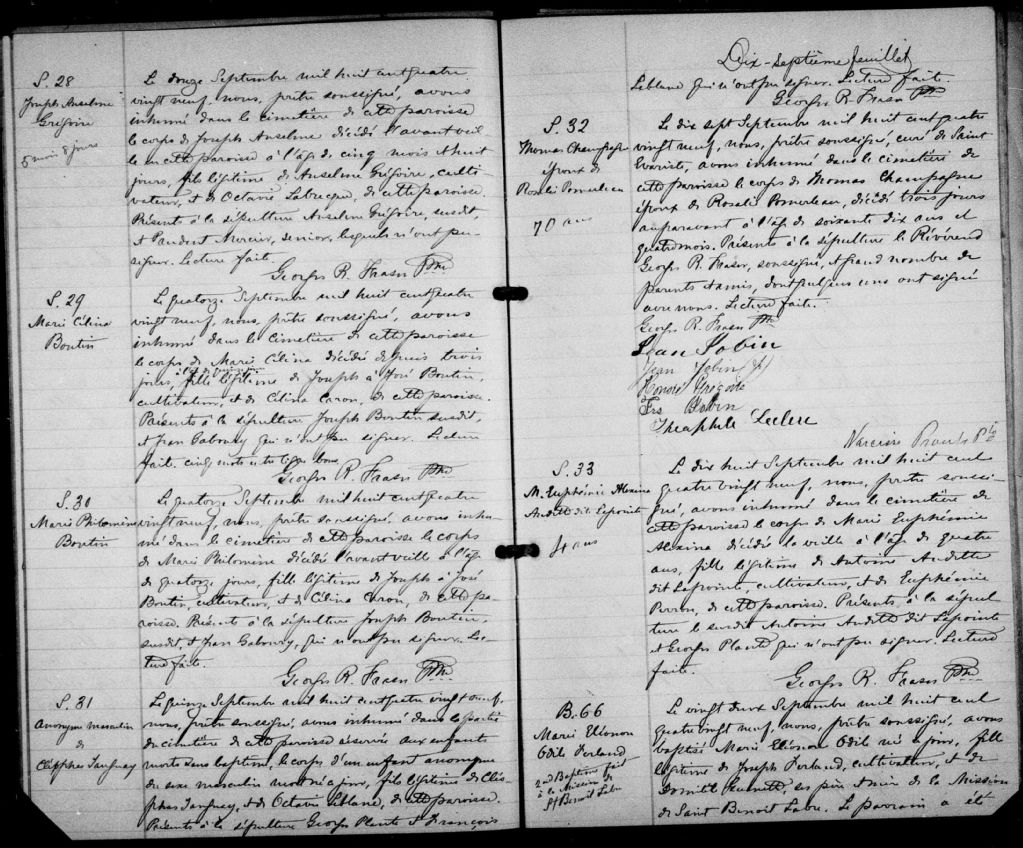 S. 28
Joseph Anselme
Grégoire
5 mois 8 jours
Le douze Septembre mil huit cent quatre
vingt neuf, nous, prêtre soussigné, avons
inhumé dans le cimetière de cette paroisse
le corps de Joseph Anselme décédé l'avant veil
le en cette paroisse à l'âge de cinq mois et huit
jours, fils légitime de Anselme Grégoire, culti-
vateur, et de Octavie Labrecque, de cette paroisse.
Présents à la sépulture Anselme Grégoire, susdit,
et Prudent Mercier, senior, lesquels n'ont pu
signer. Lecture faite.
Georges R. Fraser Ptre
S. 29
Marie Célina
Boutin
Le quatorze Septembre mil huit cent quatre
vingt neuf, nous, prêtre soussigné, avons
inhumé dans le cimetière de cette paroisse
le corps de Marie Célina décédée depuis trois
jours, fille légitime de Joseph à José Boutin,
cultivateur, et de Célina Caron, de cette paroisse.
Présents à la sépulture Joseph Boutin susdit,
et Jean Gaboury qui n'ont pu signer. Lecture
faite. cinq mots entre lignes bons.
Georges R. Fraser Ptre
S. 30
Marie Philomène
Boutin
Le quatorze Septembre mil huit cent quatre
vingt neuf, nous, prêtre soussigné, avons inhu-
mé dans le cimetière de cette paroisse le corps
de Marie Philomène décédée l'avant veille à l'âge
de quatorze jours, fille légitime de Joseph à José
Boutin, cultivateur, et de Célina Caron, de cette pa-
roisse. Présents à la sépulture Joseph Boutin,
susdit, et Jean Gaboury, qui n'ont pu signer. Lec-
ture faite.
Georges R. Fraser Ptre
S. 31
Anonyme masculin
de
Cléophas Tanguay
Le quinze Septembre mil huit cent quatre vingt neuf,
nous, prêtre soussigné, avons inhumé dans la partie
du cimetière de cette paroisse réservée aux enfants
morts sans baptême, le corps d'un enfant anonyme
du sexe masculin mort né a jour, fils légitime de Cléo-
phas Tanguay, et de Octavie Leblanc, de cette paroisse.
Présents à la sépulture Georges Plante et François
Dix-septième feuillet
Leblanc qui n'ont pu signer. Lecture faite.
Georges R. Fraser Ptre
S. 32
Thomas Champagne
époux de
Rosalie Pomerleau
70 ans
Le dix sept Septembre mil huit cent quatre
vingt neuf, nous, prêtre soussigné, curé de Saint
Evariste, avons inhumé dans le cimetière de
cette paroisse le corps de Thomas Champagne
époux de Rosalie Pomerleau, décédé trois jours
auparavant à l'âge de soixante dix ans et
quatre mois. Présents à la sépulture le Révérend
Georges R. Fraser, soussigné, et grand nombre de
parents et amis, dont quelques uns ont signé
avec nous. Lecture faite.
Georges R. Fraser Ptre
Jean Jobin
Jean Jobin
Honoré Gregoire
Frs Jobin
Théophile Leclerc
Narcisse Proulx Ptre
S. 33
M. Euphémie Alexina
Audette dit Lapointe
4 ans
Le dix huit Septembre mil huit cent
quatre vingt neuf, nous, prêtre soussi-
gné, avons inhumé dans le cimetière de
cette paroisse le corps de Marie Euphémie
Alexina décédée la veille à l'âge de quatre
ans, fille légitime de Antoine Audette
dit Lapointe, cultivateur, et de Euphémie
Perron, de cette paroisse. Présents, à la sépul-
ture le susdit Antoine Audette dit Lapointe
et Georges Plante qui n'ont pu signer. Lecture
faite.
Georges R. Fraser Ptre
B. 66
Marie Eléonon
Odile Ferland
2nd Baptême fait
à la Mission de
St Benoit Labre
Le vingt deux Septembre mil huit cent
quatre vingt neuf, nous, prêtre soussigné, avons
baptisé Marie Eléonon Odile né a jour, fille
légitime de Joseph Ferland, cultivateur, et de
ses père et mère de la Mission
de Saint Benoit Labre. Le parrain a été